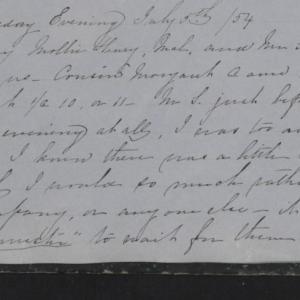 day Evening July 5th /54
Mollie Henry, Mel, and Mr
us - Cousin Morgauh came
1/2 10, or 11 - Mr S. just bef
evening at all, I was too
I knew there was a little
I would so much rather
pany, or anyone else -
to wait for them